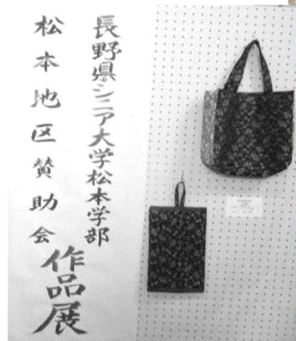 長野県シニア大学松本学部
松本地区賛助会
作品展